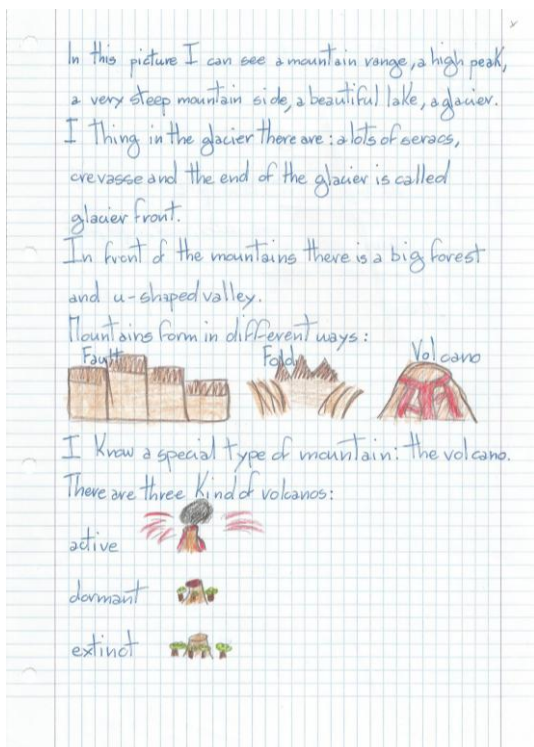 In this picture I can see a mountain range, a high peak,
a very steep mountain side, a beautiful lake, a glacier.
I Thing in the glacier there are: a lots of seracs,
crevasse and the end of the glacier is called
glacier front.
In front of the mountains there is a big forest
and u-shaped valley.
Mountains form in different ways:
Fault Fold Volcano
I Know a special type of mountain: the volcano.
There are three Kind of volcanos:
active
dormant
extinct